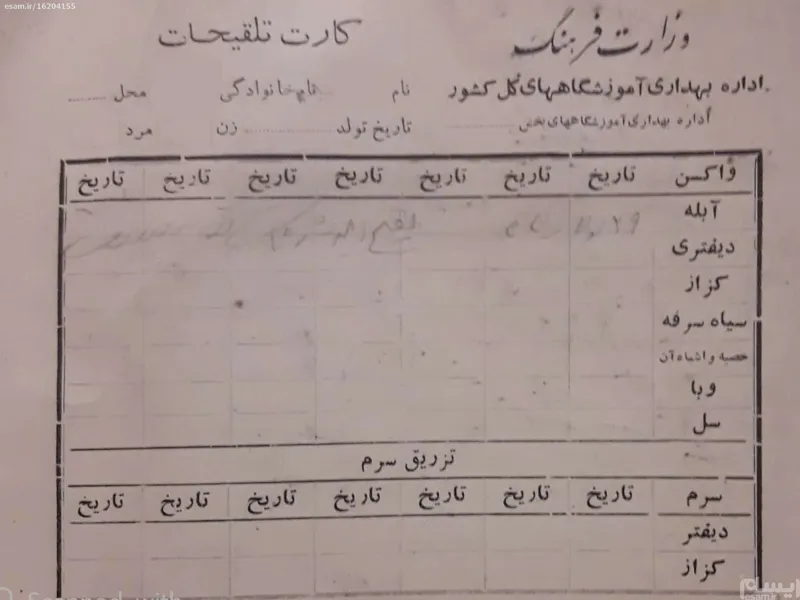 esam.ir/16204155
وزارت فرهنگ
کارت تلقیحات
اداره بهداری آموزشگاههای کل کشور
نام ........ نام خانوادگی ........ محل ........
اداره بهداری آموزشگاههای بخش ........
تاریخ تولد ........ زن مرد
واکسن تاریخ تاریخ تاریخ تاریخ تاریخ تاریخ تاریخ
آبله
دیفتری
کزاز
سیاه سرفه
حصبه و اشباه آن
وبا
سل
تزریق سرم
سرم تاریخ تاریخ تاریخ تاریخ تاریخ تاریخ تاریخ
دیفتر
کزاز
Scanned with
ایسام
esam.ir